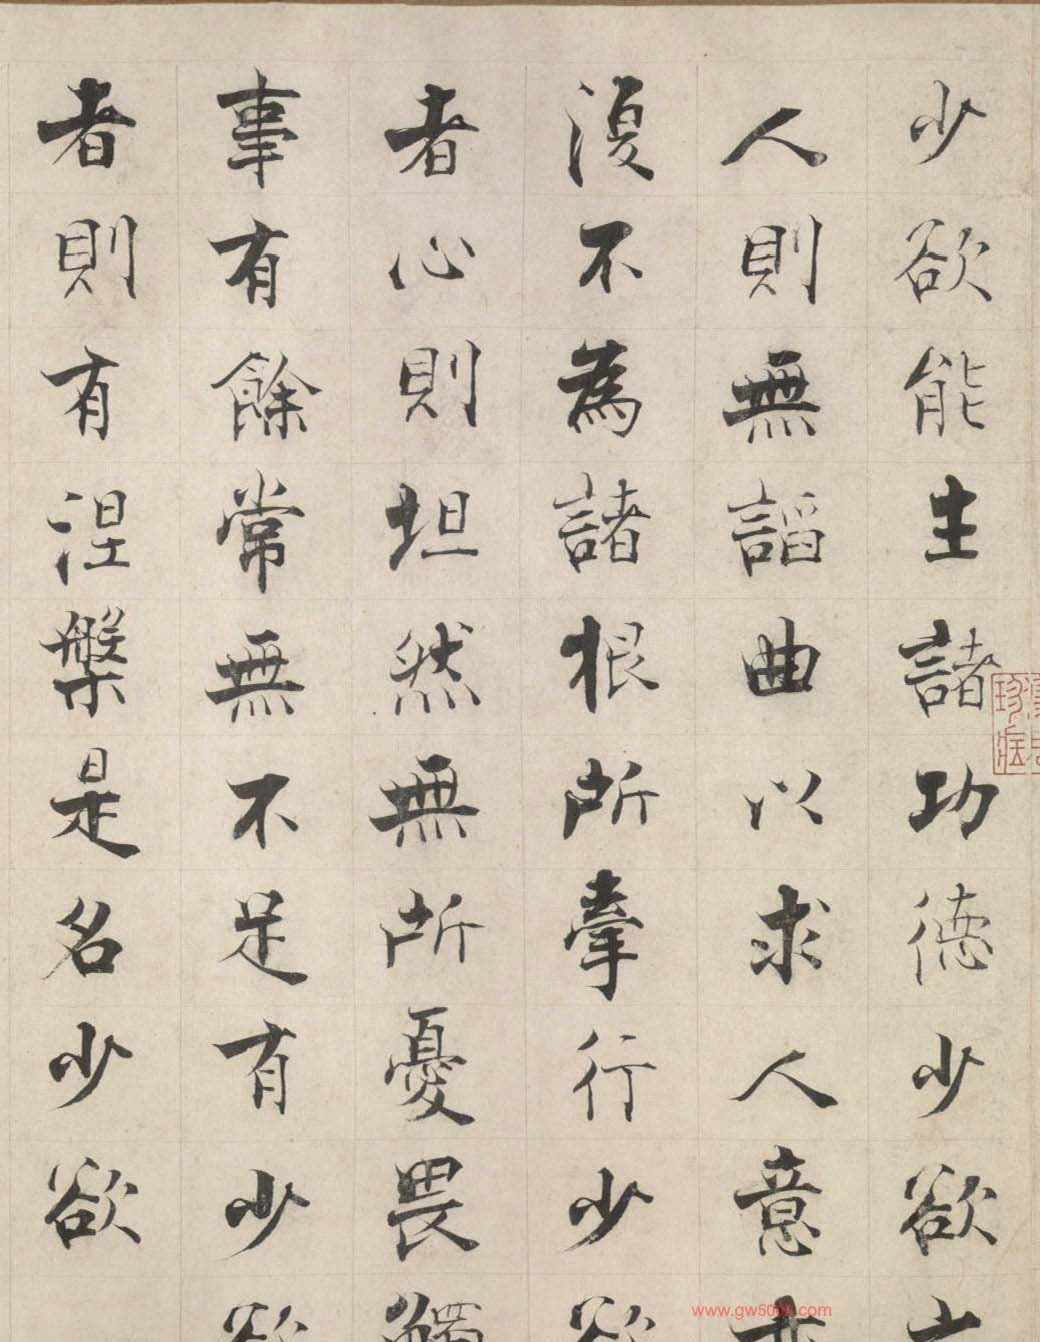 少欲能生諸功德少欲之
人則無諂曲以求人意亦
復不為諸根所牽行少欲
者心則坦然無所憂畏觸
事有餘常無不足有少欲
者則有涅槃是名少欲
珍蔵
www.gw500.com